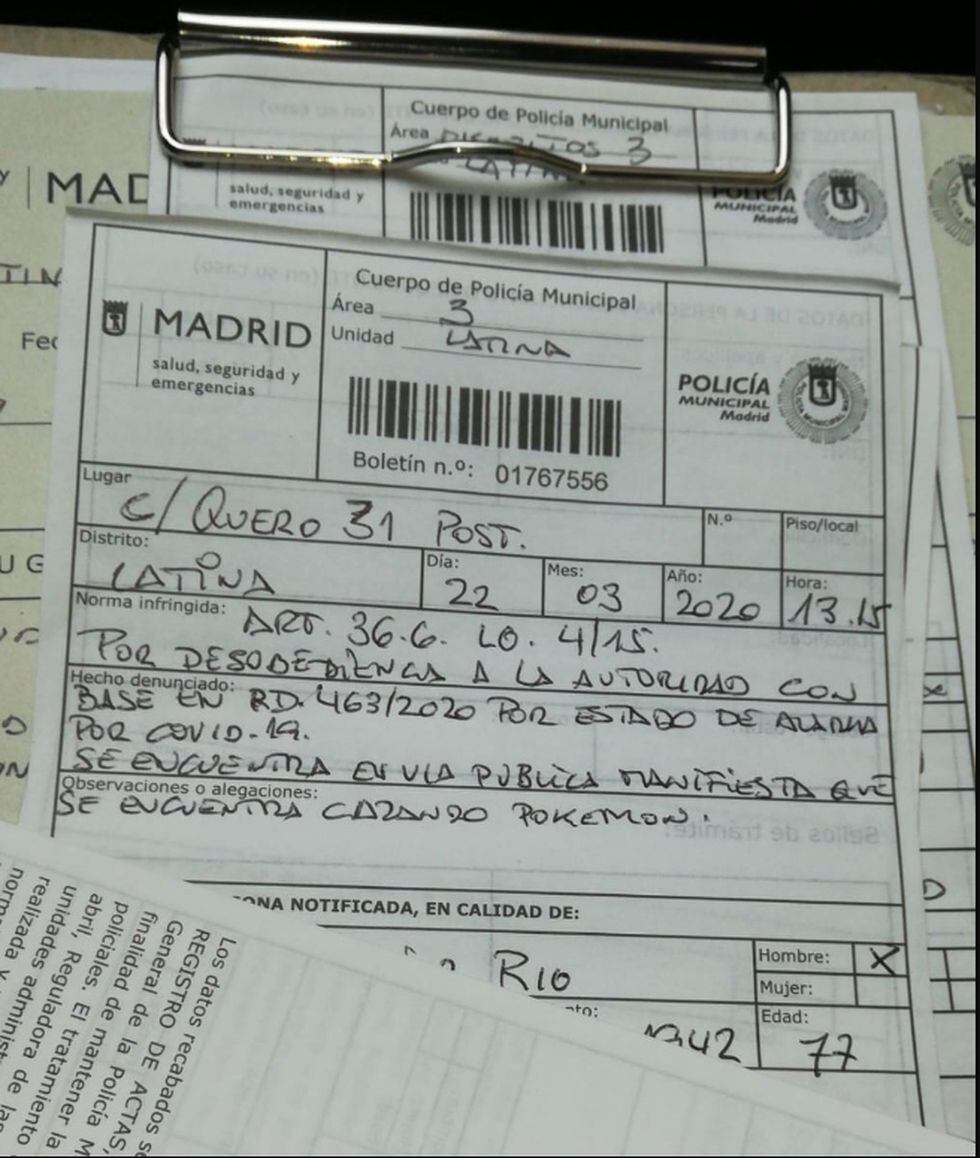 Cuerpo de Policía Municipal
Área DISTRITOS 3
LATINA
salud, seguridad y
emergencias
POLICÍA
MUNICIPAL
Madrid
MAD
Cuerpo de Policía Municipal
Área 3
Unidad LATINA
MADRID
salud, seguridad y
emergencias
POLICÍA
MUNICIPAL
Madrid
Boletín n.º: 01767556
Lugar
C/ QUERO 31 POST.
N.º
Piso/local
Distrito:
LATINA
Día:
22
Mes:
03
Año:
2020
Hora:
13.15
Norma infringida:
ART. 36.6. LO. 4/15.
POR DESOBEDIENCIA A LA AUTORIDAD CON
Hecho denunciado:
BASE EN RD. 463/2020 POR ESTADO DE ALARMA
POR COVID-19.
SE ENCUENTRA EN VIA PUBLICA MANIFIESTA QUE
Observaciones o alegaciones:
SE ENCUENTRA CAZANDO POKEMON.
ONA NOTIFICADA, EN CALIDAD DE:
RIO
Hombre: X
Mujer:
Edad:
77
42
Los datos recabados se
REGISTRO DE ACTAS,
General de la Policía M
finalidad de mantener la
policiales. El tratamiento
abril, Reguladora de
unidades administ
realizada y